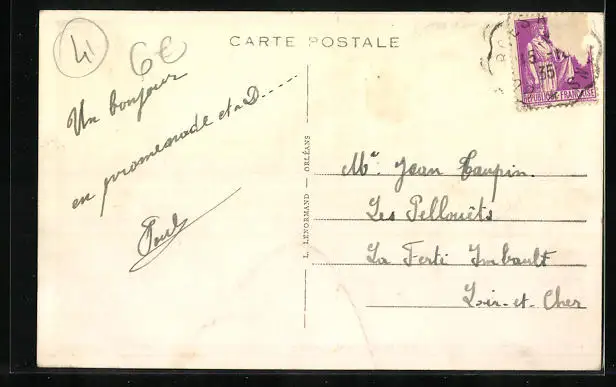 41
6€
CARTE POSTALE
35
REPUBLIQUE FRANÇAISE
Un bonjour
en promenade et à D.....
Paul
L. LENORMAND - ORLÉANS
Mr Jean Taupin.
Les Pellouëts
La Ferté Imbault
Loir-et-Cher